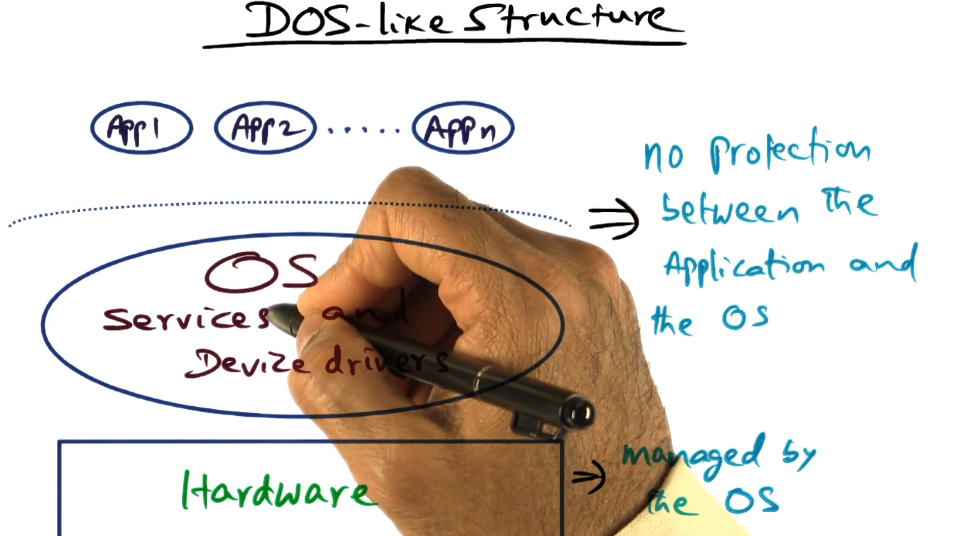 DOS-like Structure
App1 App2 ..... Appn
no protection
between the
Application and
the OS
OS
Services and
Device drivers
Hardware
managed by
the OS